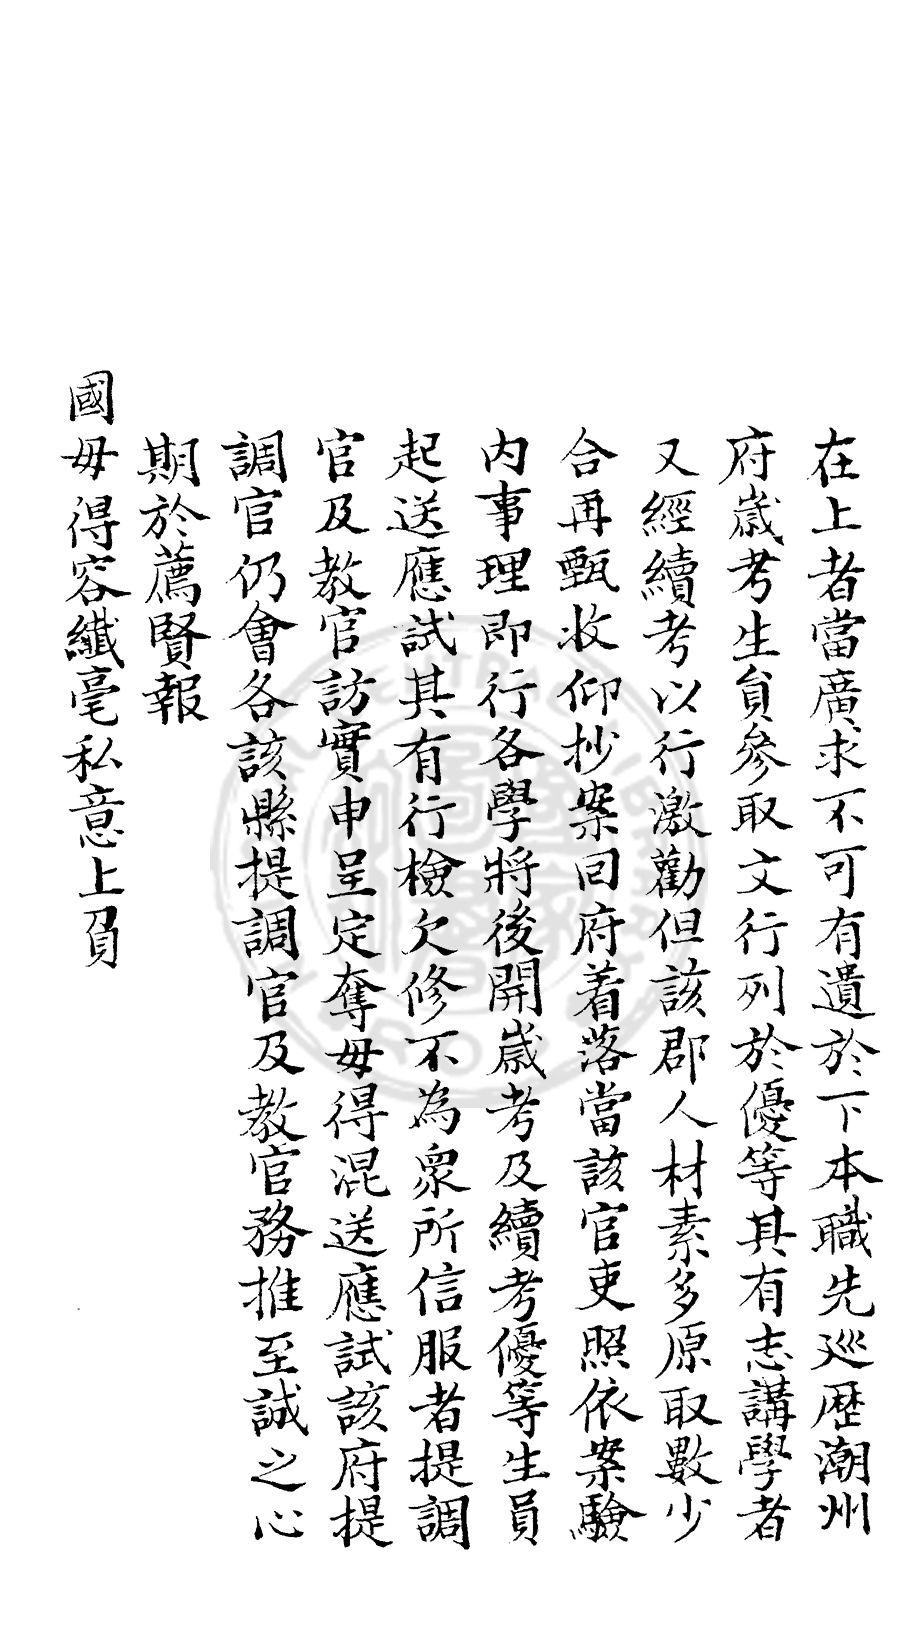 在上者當廣求不可有遺於下本職先巡歷潮州
府嵗考生員參取文行列於優等其有志講學者
又經續考以行激勸但該郡人材素多原取數少
合再甄收仰抄案回府着落當該官吏照依案驗
内事理即行各學將後開嵗考及續考優等生員
起送應試其有行檢欠修不為衆所信服者提調
官及教官訪實申呈定奪毋得混送應試該府提
調官仍會各該縣提調官及教官務推至誠之心
期於薦賢報
國毋得容纖毫私意上負